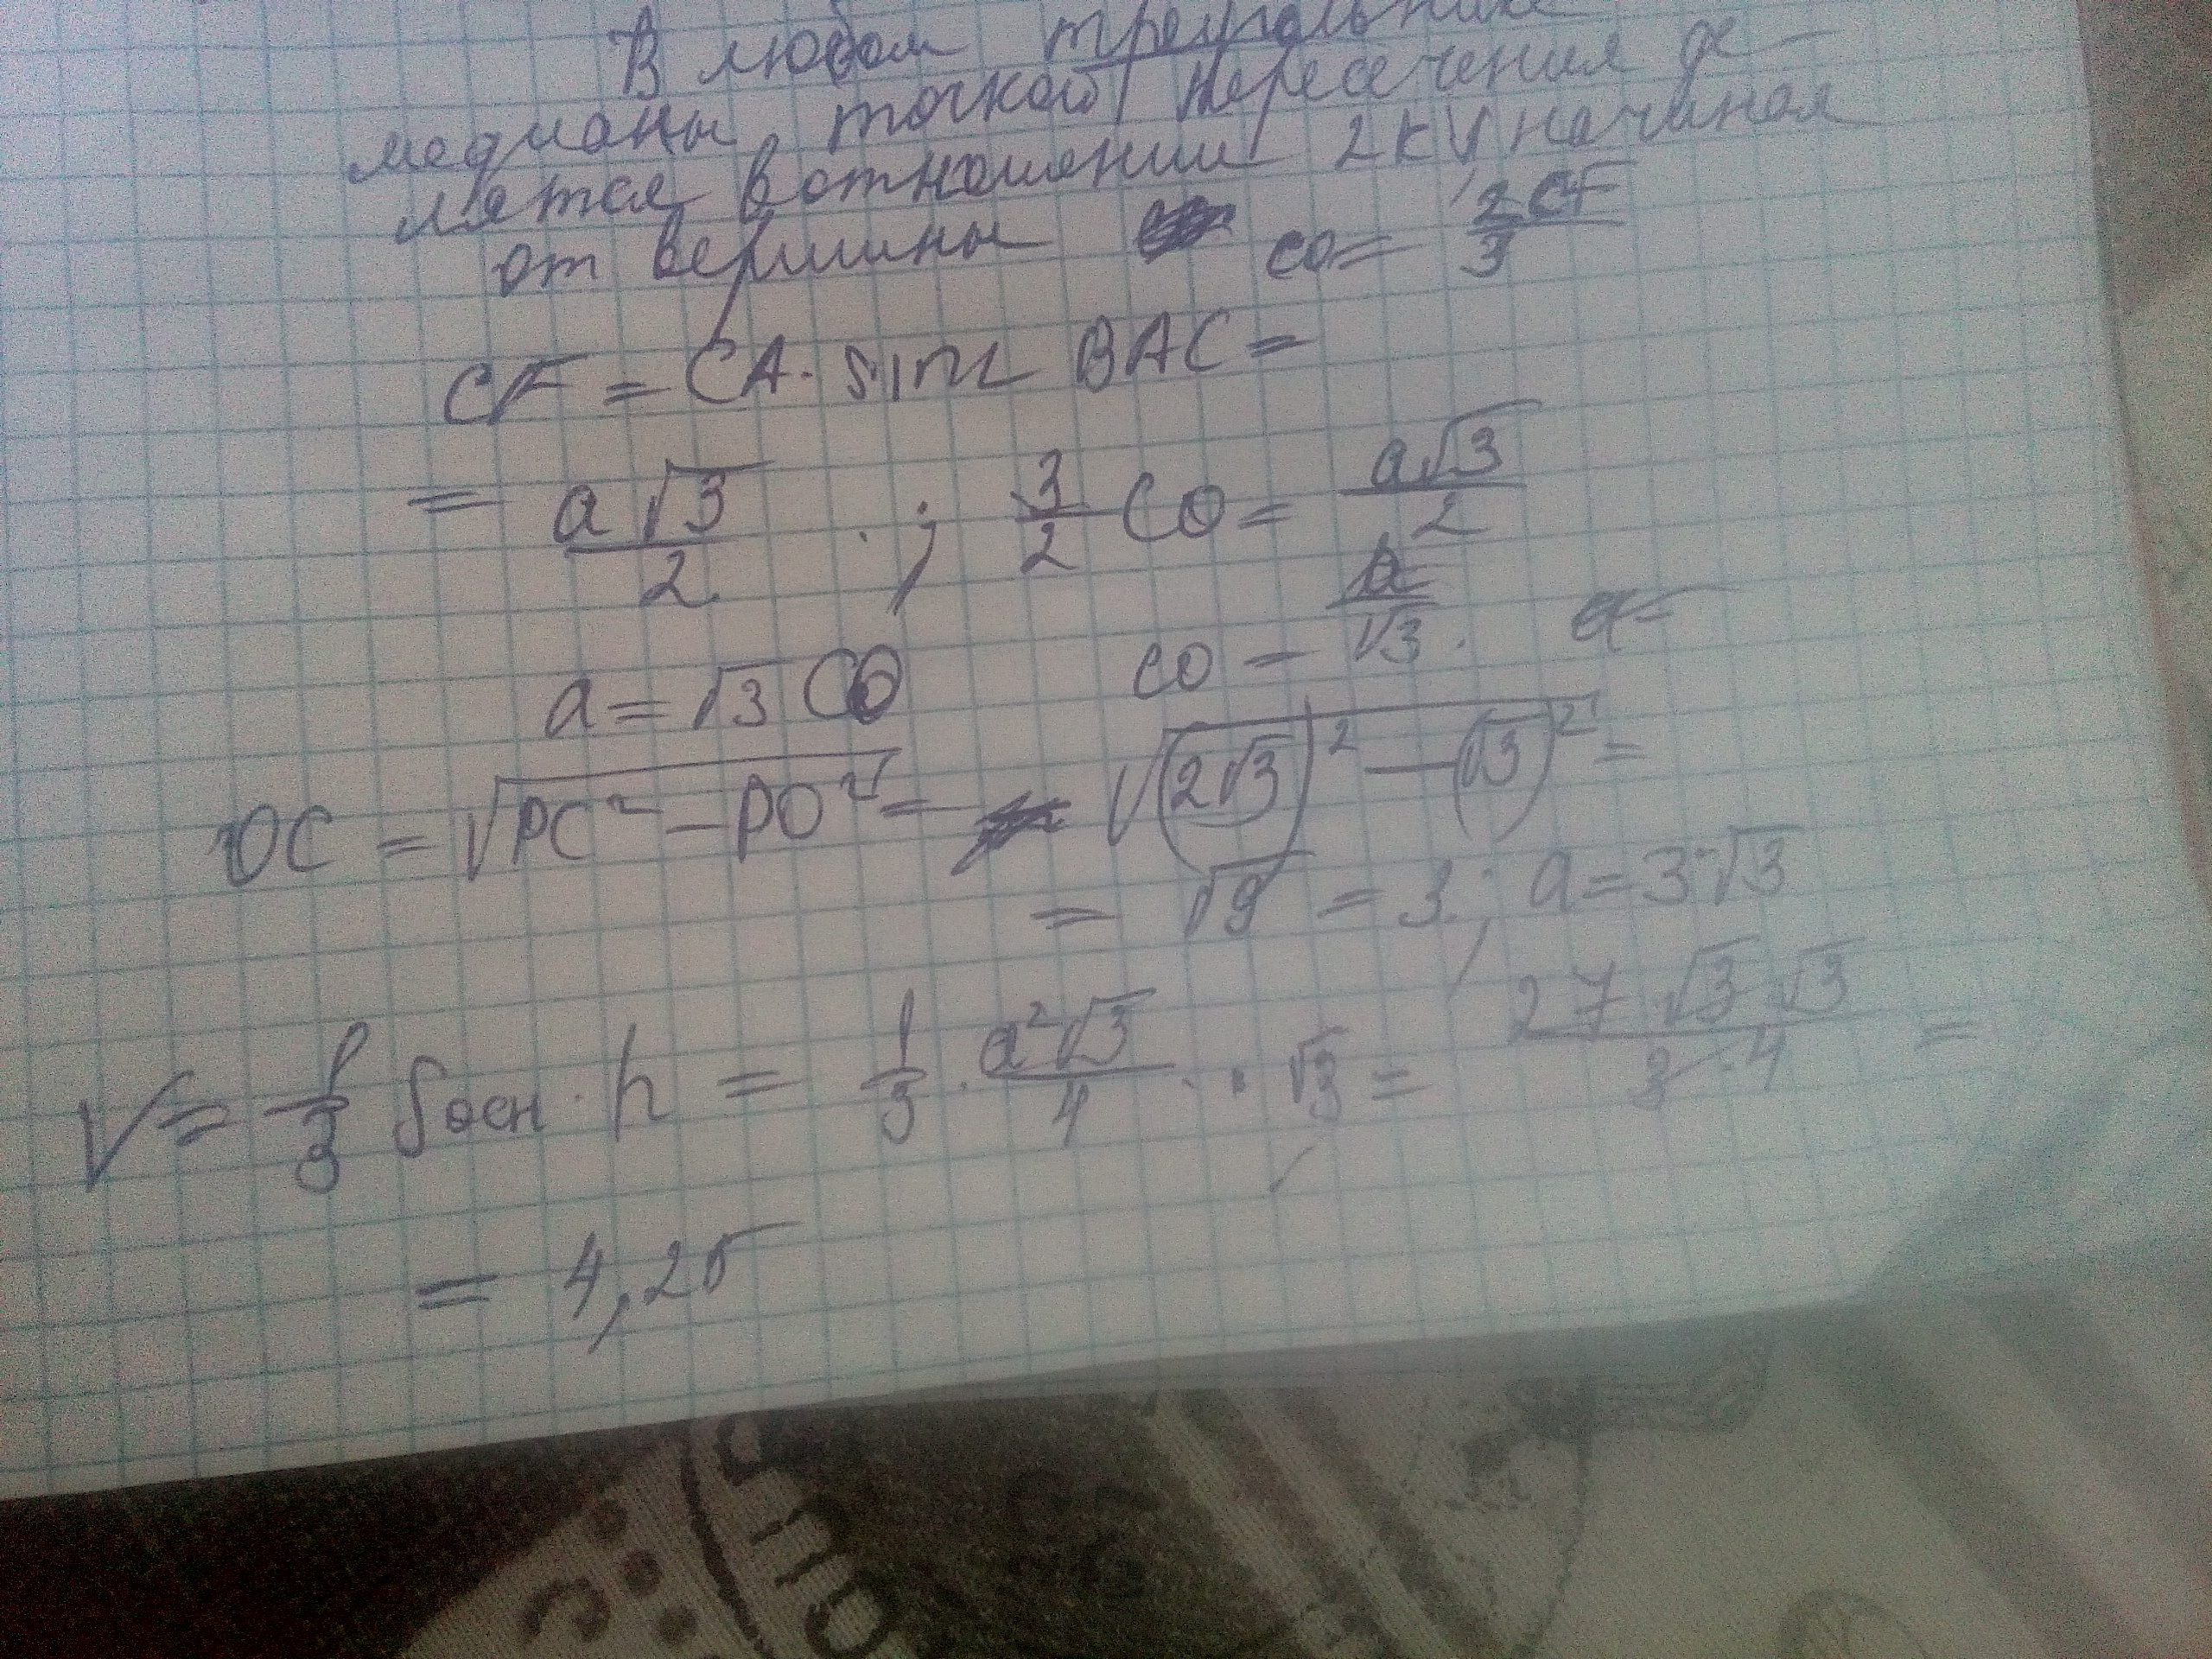 В любом треугольнике
медианы точкой пересечения де-
лятся в отношении 2 к 1, начиная
от вершины CO = 2CF/3
CF = CA · sin BAC =
= a√3/2 ; 3/2 CO = a√3/2
a = √3 CO CO = a/√3 .
OC = √(PC² − PO²) = √((2√3)² − (√3)²) =
= √9 = 3 ; a = 3·√3
V = 1/3 Sосн · h = 1/3 · a²√3/4 · √3 = 27 √3 √3/3·4 =
= 4,25